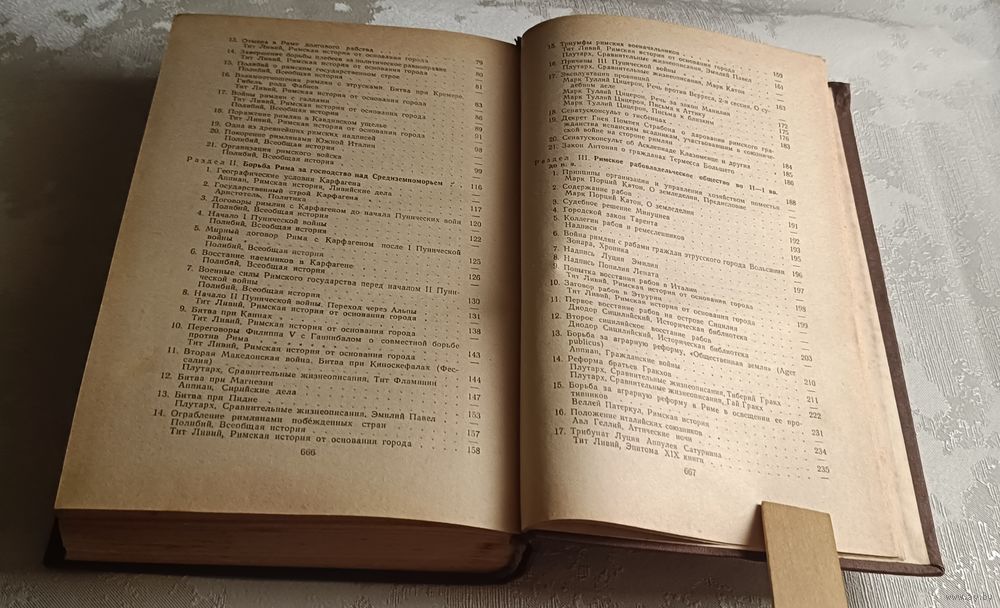 13. Отмена в Риме долгового рабства
Тит Ливий, Римская история от основания города 79
14. Завершение борьбы плебеев за политическое равноправие
Тит Ливий, Римская история от основания города 80
15. Полибий о римском государственном строе
Полибий, Всеобщая история 81
16. Взаимоотношения римлян с этрусками. Битва при Кремере.
Гибель рода Фабиев 83
Тит Ливий, Римская история от основания города
17. Войны римлян с галлами
Тит Ливий, Римская история от основания города 86
Полибий, Всеобщая история
18. Поражение римлян в Кавдинском ущелье 89
Тит Ливий, Римская история от основания города
19. Одна из древнейших римских надписей 91
20. Покорение римлянами Южной Италии 93
Полибий, Всеобщая история
21. Организация римского войска
Полибий, Всеобщая история 99
Раздел II. Борьба Рима за господство над Средиземноморьем
1. Географические условия Карфагена 116
Аппиан, Римская история, Ливийские дела
2. Государственный строй Карфагена 117
Аристотель, Политика
3. Договоры римлян с Карфагеном до начала Пунических войн 120
Полибий, Всеобщая история
4. Начало I Пунической войны 122
Полибий, Всеобщая история
5. Мирный договор Рима с Карфагеном после I Пунической
войны 125
Полибий, Всеобщая история
6. Восстание наемников в Карфагене 126
Полибий, Всеобщая история
7. Военные силы Римского государства перед началом II Пуни-
ческой войны 130
Полибий, Всеобщая история
8. Начало II Пунической войны. Переход через Альпы 131
Тит Ливий, Римская история от основания города
9. Битва при Каннах 138
Тит Ливий, Римская история от основания города
10. Переговоры Филиппа V с Ганнибалом о совместной борьбе
против Рима 143
Тит Ливий, Римская история от основания города
11. Вторая Македонская война. Битва при Киноскефалах (Фес-
салия) 144
Плутарх, Сравнительные жизнеописания, Тит Фламинин
12. Битва при Магнезии
Аппиан, Сирийские дела
13. Битва при Пидне 153
Плутарх, Сравнительные жизнеописания, Эмилий Павел
14. Ограбление римлянами побежденных стран 157
Полибий, Всеобщая история
Тит Ливий, Римская история от основания города 158
666
15. Триумфы римских военачальников
Тит Ливий, Римская история от основания города 159
Плутарх, Сравнительные жизнеописания, Эмилий Павел
16. Причины III Пунической войны 161
Плутарх, Сравнительные жизнеописания, Марк Катон
17. Эксплуатация провинций 163
Марк Туллий Цицерон, Речь против Верреса, 2-я сессия, О су-
дебном деле
Марк Туллий Цицерон, Речь за закон Манилия
Марк Туллий Цицерон, Письма к Аттику
Марк Туллий Цицерон, Письма к близким 172
18. Сенатусконсульт о тисбейцах 175
19. Декрет Гнея Помпея Страбона о даровании римского гра-
жданства испанским всадникам, участвовавшим в союзниче-
ской войне на стороне римлян 183
20. Сенатусконсульт об Асклепиаде Клазомение и других 184
21. Закон Антония о гражданах Термесса Большего 185
Раздел III. Римское рабовладельческое общество во II—I вв.
до н. э. 186
1. Принципы организации и управления хозяйством поместья
Марк Порций Катон, О земледелии, Предисловие 188
2. Содержание рабов
Марк Порций Катон, О земледелии 191
3. Судебное решение Минуциев
4. Городской закон Тарента 192
5. Коллегии рабов и ремесленников 193
Надписи 195
6. Война римлян с рабами граждан этрусского города Вольсинии
Зонара, Хроника 196
7. Надпись Луция Эмилия
8. Надпись Попилия Лената 197
9. Попытка восстания рабов в Италии
Тит Ливий, Римская история от основания города 198
10. Заговор рабов в Этрурии
Тит Ливий, Римская история от основания города 199
11. Первое восстание рабов на острове Сицилия
Диодор Сицилийский, Историческая библиотека
12. Второе сицилийское восстание рабов 203
Диодор Сицилийский, Историческая библиотека
13. Борьба за аграрную реформу, «Общественная земля» (Ager
publicus) 210
Аппиан, Гражданские войны
14. Реформа братьев Гракхов 211
Плутарх, Сравнительные жизнеописания, Тиберий Гракх
Плутарх, Сравнительные жизнеописания, Гай Гракх
15. Борьба за аграрную реформу в Риме в освещении ее про-
тивников 222
Веллей Патеркул, Римская история
16. Положение италийских союзников 231
Авл Геллий, Аттические ночи
17. Трибунат Луция Аппулея Сатурнина 234
Тит Ливий, Эпитома XIX книги 235
667